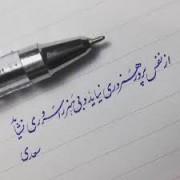 از نفس پرور هنروری نیاید و بی هنر سروری را نشاید
سعدی